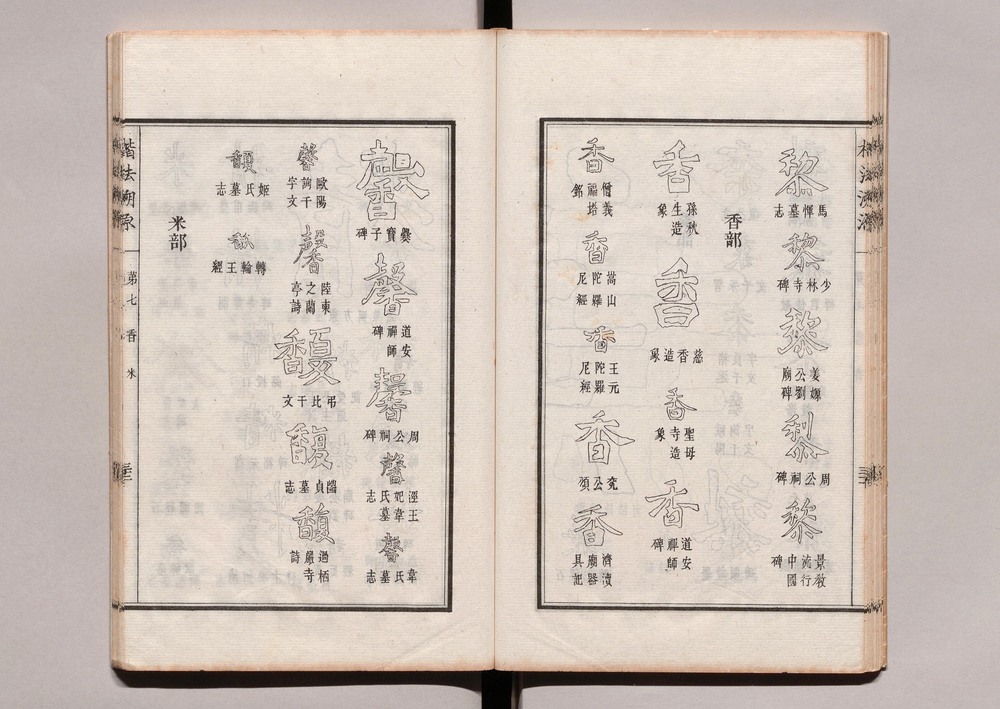 黎
馬惲墓志
黎
少林寺碑
黎
姜嫄公劉廟碑
黎
周公祠碑
黎
景教流行中國碑
香部
香
孫秋生造象
香
慈香造象
香
聖母寺造象
香
道安禪師碑
香
僧義福塔銘
香
嵩山陀羅尼經
香
王元陀羅尼經
香
兗公頌
香
濟瀆廟器具記
馨
爨寶子碑
馨
道安禪師碑
馨
周公祠碑
馨
涇王妃韋氏墓志
馨
韋氏墓志
馨
歐陽詢千字文
馨
陸柬之蘭亭詩
馥
弔比干文
馥
閻貞墓志
馥
過栖巖寺詩
馥
姬氏墓志
馥
轉輪王經
米部
楷法溯源
第七 香 米